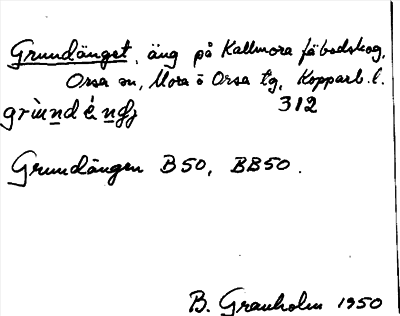 Grundänget, äng på Kallmora fäbodskog,
Orsa sn, Mora o Orsa tg, Kopparb. l.
312
Grundängen B50, BB50.
B. Granholm 1950